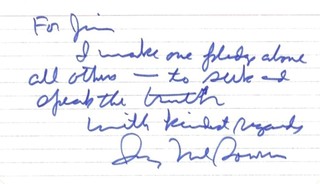 For Jim
I make one pledge above
all others — to seek and
speak the truth
with kindest regards